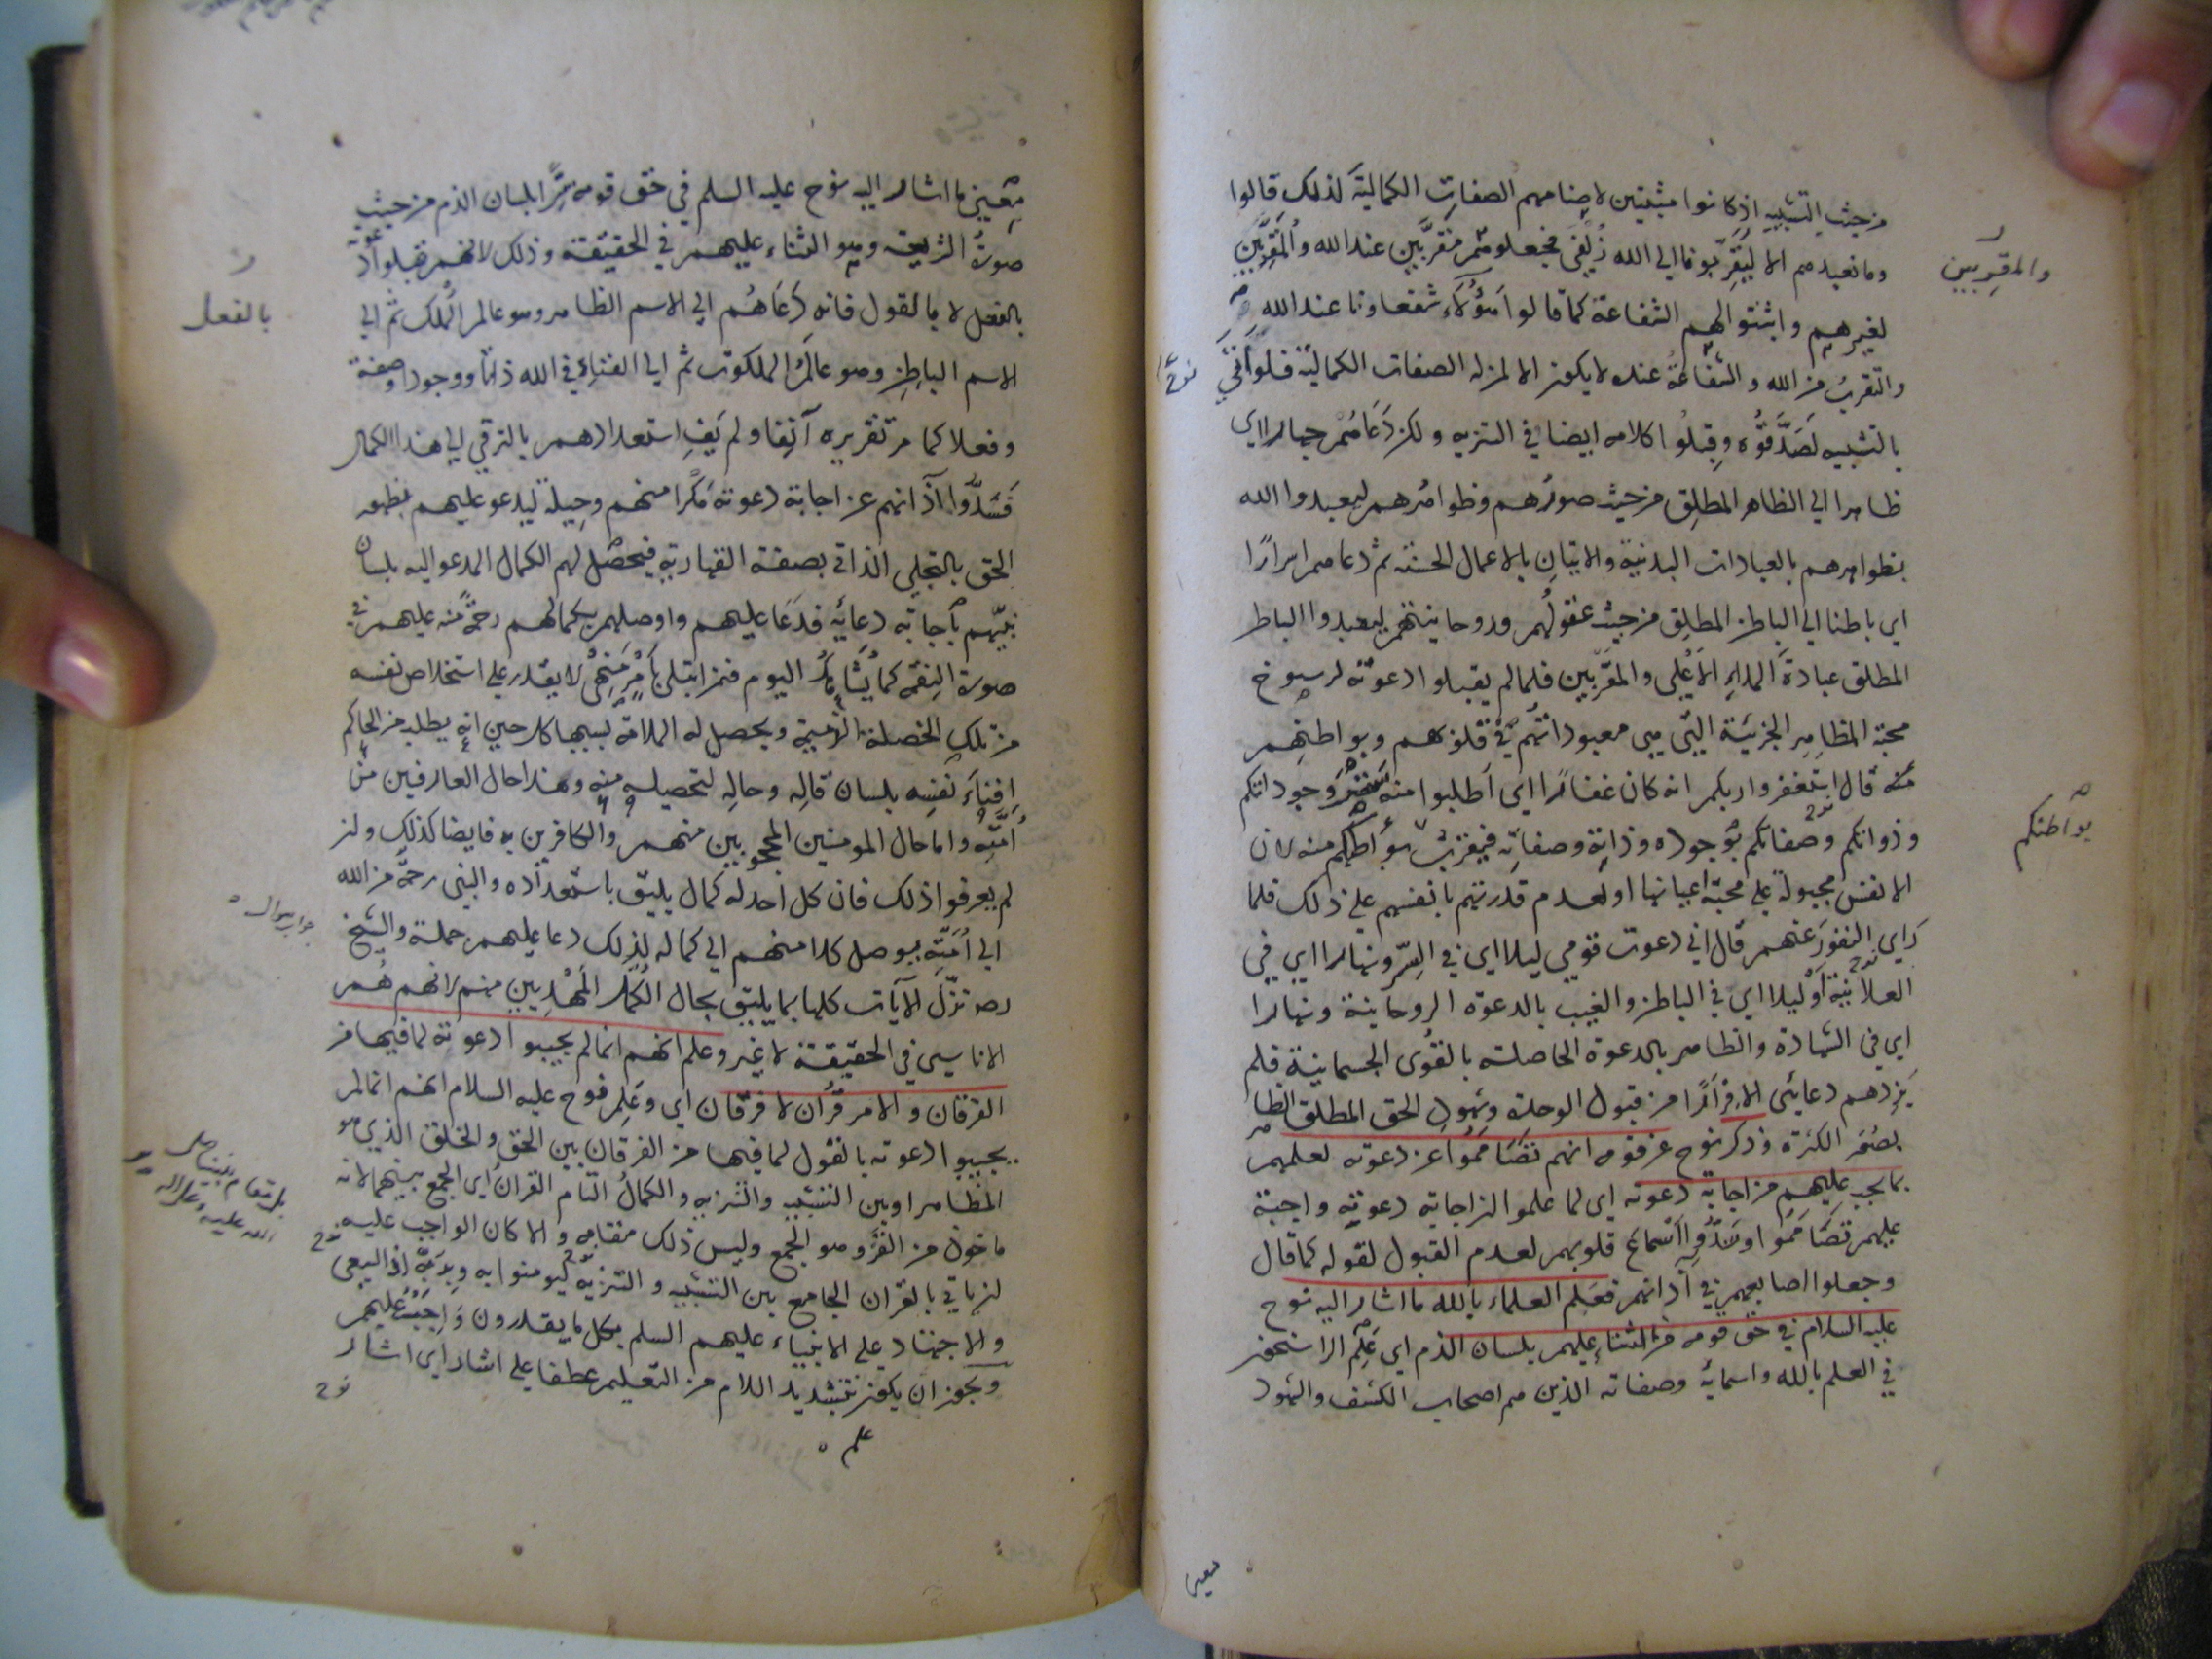 من حيث التشبيه اذ كانوا مثبتين لاصنامهم الصفات الكمالية لذلك قالوا
وما نعبدهم الا ليقربونا الى الله زلفى فجعلوهم مقربين عند الله والمقربين
والمقربين
لغيرهم واثبتوا لهم الشفاعة كما قالوا هؤلاء شفعاونا عند الله
والتقرب من الله والشفاعة عنده لا يكون الا لمن له الصفات الكمالية فلو اتى نوح
بالتشبيه لصدقوه وقبلوا كلامه ايضا في التنزيه ولكن دعاهم جهارا اى
ظاهرا الى الظاهر المطلق من حيث صورهم وظواهرهم ليعبدوا الله
بظواهرهم بالعبادات البدنية والاتيان بالاعمال الحسنة ثم دعاهم اسرارًا
اى باطنا الى الباطن المطلق من حيث عقولهم وروحانيتهم ليعبدوا الباطن
المطلق عبادة الملاء الاعلى والمقربين فلما لم يقبلوا دعوته لرسوخ
محبة المظاهر الجزئية التى هى معبوداتهم في قلوبهم وبواطنهم
منه قال استغفروا ربكم انه كان غفارا اى اطلبوا منه ستر وجوداتكم
وذواتكم وصفاتكم بوجوده وذاته وصفاته بواطنكم منه لان
بواطنكم
الانفس مجبولة على محبة اعيانها او لعدم قدرتهم بانفسهم على ذلك فلما
راى النفور عنهم قال انى دعوت قومى ليلا اى في السر ونهارا اى في
العلانية او ليلا اى في الباطن والغيب بالدعوة الروحانية ونهارا
اى في الشهادة والظاهر بالدعوة الحاصلة بالقوى الجسمانية فلم
يزدهم دعائى الا فرارًا من قبول الوحدة وشهود الحق المطلق الظاهر
بصور الكثرة وذكر نوح عن قومه انهم تصامموا عن دعوته لعلمهم
بما يجب عليهم من اجابة دعوته اى لما علموا ان اجابة دعوته واجبة
عليهم تصامموا وسدوا اسماع قلوبهم لعدم القبول لقوله كما قال
وجعلوا اصابعهم في آذانهم فعلم العلماء بالله ما اشار اليه نوح
عليه السلام في حق قومه من الثناء عليهم بلسان الذم اى علم الراسخون
في العلم بالله واسمائه وصفاته الذين هم اصحاب الكشف والشهود
معنى ما اشار اليه نوح عليه السلم في حق قومه سرا بلسان الذم من حيث
صورة الشريعة وهو الثناء عليهم في الحقيقة وذلك لانهم قبلوا دعوته
بالفعل لا بالقول فانه دعاهم الى الاسم الظاهر وهو عالم الملك ثم الى
بالفعل
الاسم الباطن وهو عالم الملكوت ثم الى الفناء في الله ذاتا ووجودا وصفة
وفعلا كما مر تقريره آنفا ولم يف استعدادهم بالترقى الى هذا الكمال
فسدوا آذانهم عن اجابة دعوته مكرا منهم وحيلة ليدعو عليهم بظهور
الحق بالتجلى الذاتى بصفة القهارية فيحصل لهم الكمال المدعو اليه بلسان
نبيهم باجابة دعائه فدعا عليهم واوصلهم بكمالهم رحمة منه عليهم في
صورة النقمة كما يشاهد اليوم فمن ابتلى بامر منهى لا يقدر على استخلاص نفسه
من تلك الخصلة الذميمة ويحصل له الملامة بسببها كل حين انه يطلب من الحاكم
افناء نفسه بلسان قاله وحاله لتحصيله منه وهذا حال العارفين من
امته واما حال المومنين المحجوبين منهم والكافرين به فايضا كذلك وان
لم يعرفوا ذلك فان كل احد له كمال يليق باستعداده والنبى رحمة من الله
الى امته ليوصل كلا منهم الى كماله لذلك دعا عليهم جملة والشيخ
رضه نزل الآيات كلها بما يليق بحال الكمل المهديين منهم لانهم هم
الاناسى في الحقيقة لا غير وعلم انهم انما لم يجيبوا دعوته لما فيها من
الفرقان والامر قرآن لا فرقان اى وعلم نوح عليه السلام انهم انما لم
يجيبوا دعوته بالقول لما فيها من الفرقان بين الحق والخلق الذى هو
المظاهر او بين التشبيه والتنزيه والكمال التام القران اى الجمع بينهما لانه
ماخوذ من القرء وهو الجمع وليس ذلك مقامه والا كان الواجب عليه
ان ياتى بالقران الجامع بين التشبيه والتنزيه ليومنوا به وبربه اذ السعى
والاجتهاد على الانبياء عليهم السلم بكل ما يقدرون واجب عليهم
ويجوز ان يكون بتشديد اللام من التعليم عطفا على اشار اى اشار
علم